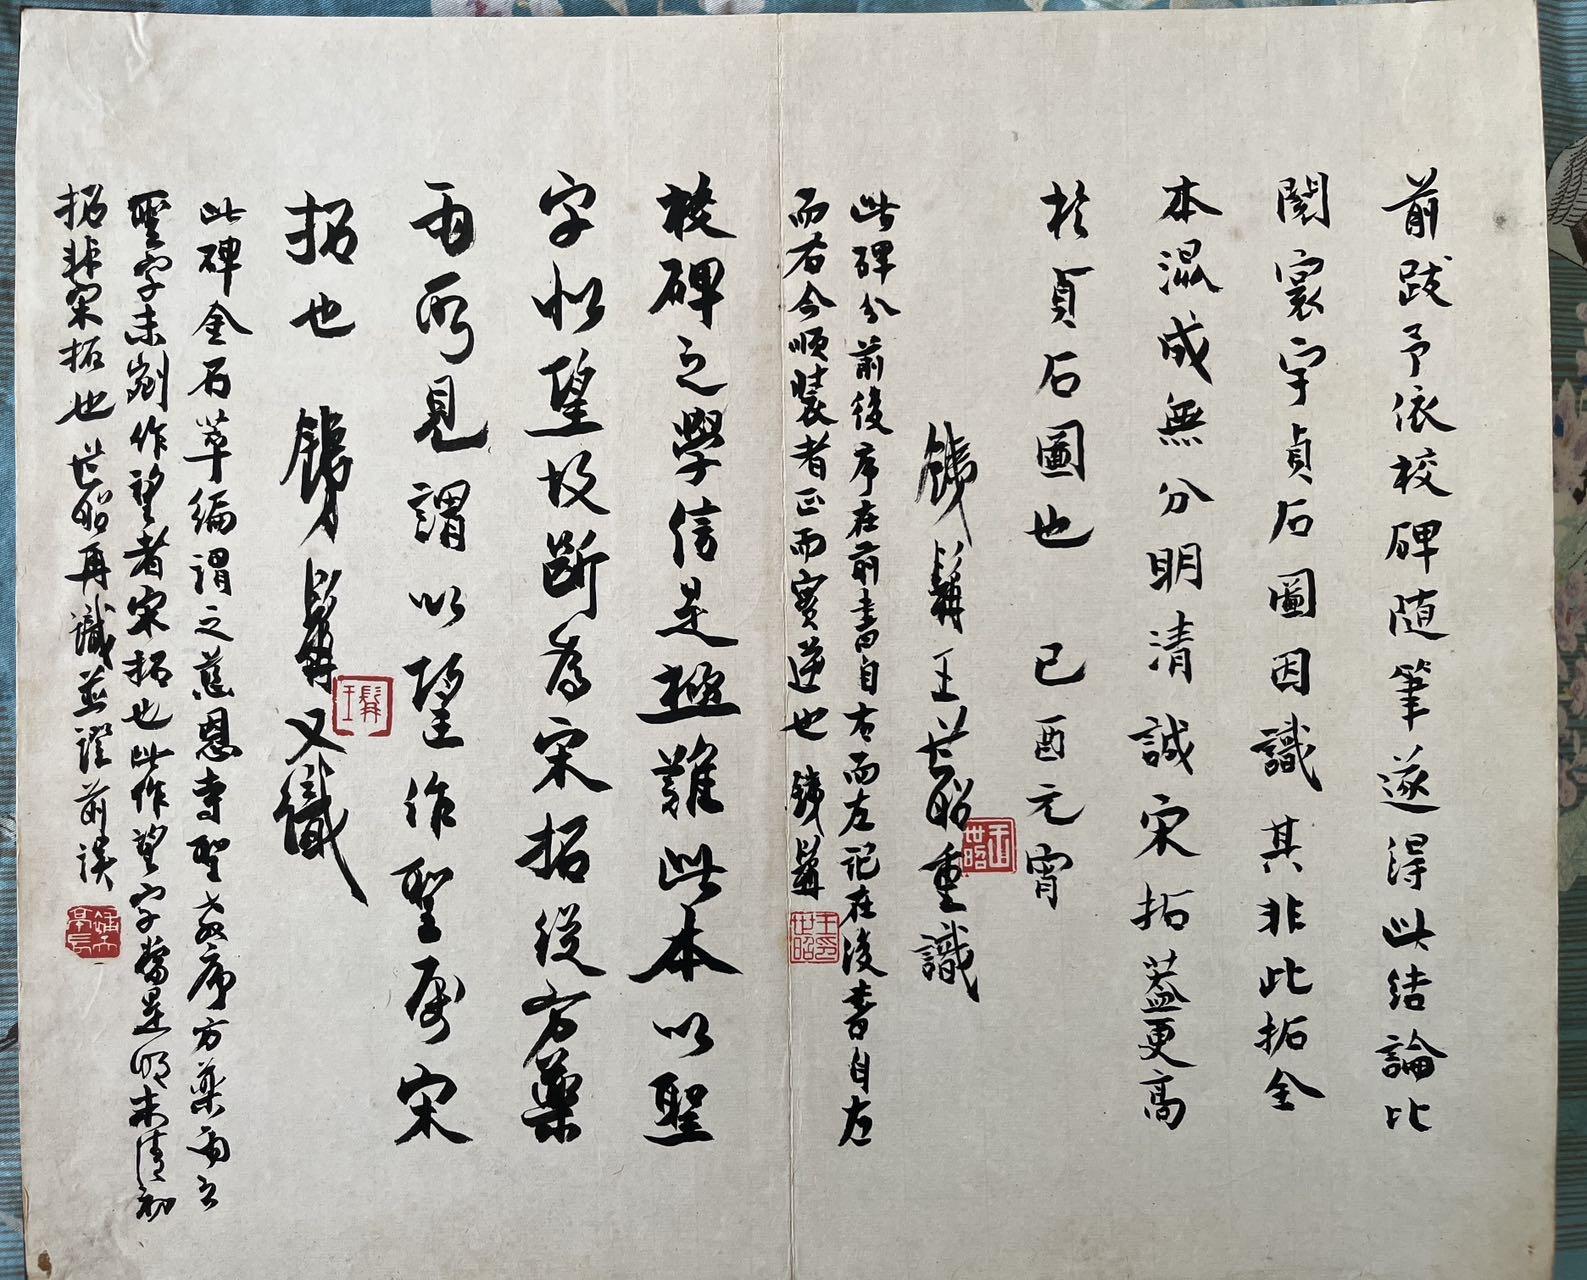 前跋予依校碑随筆遂得此結論比
閱寰宇貞石圖因識其非此拓全
本混成無分明清誠宋拓蓋更高
於貞石圖也 已酉元宵
鐵髯王世昭重識
王世昭
此碑分前後序在前書自右而左記在後書自左
而右今順裝者正而實逆也 鐵髯
王世昭印
校碑之學信是極難此本以聖
字似望故斷為宋拓從方藥
雨所見謂以望作聖為宋
拓也 鐵髯又識
髯王
此碑金石萃編謂之慈恩寺聖教序方藥雨云
聖字未剜作望者宋拓也此作望字當是明末清初
拓非宋拓也 世昭再識並證前誤